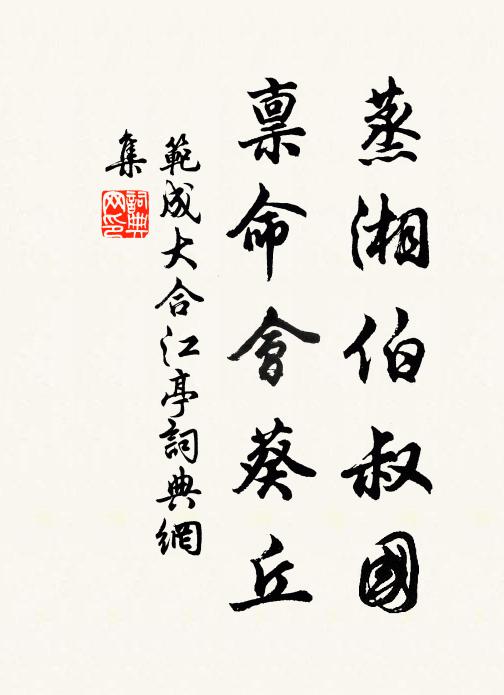 蒸湘伯叔國
稟命會葵丘
範成大合江亭詞典網
集
詞典
网印